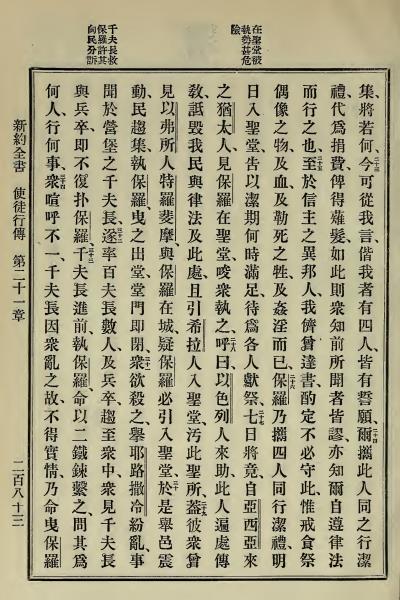 在聖堂被
執勢甚危
險
千夫長救
保羅許其
向民分訴
集將若何、二十三今可從我言、偕我者有四人、皆有誓願、二十四爾攜此人同之行潔
禮、代爲捐費、俾得薙髮、如此則衆知前所聞者皆謬、亦知爾自遵律法
而行之也、二十五至於信主之異邦人、我儕曾達書酌定不必守此、惟戒食祭
偶像之物、及血、及勒死之牲、及姦淫而已、二十六保羅乃攜四人同行潔禮、明
日入聖堂、告以潔期何時滿足、待爲各人獻祭、二十七七日將竟、自亞西亞來
之猶太人、見保羅在聖堂、唆衆執之、二十八呼曰、以色列人來助、此人遍處傳
敎、詆毀我民與律法及此處、且引希拉人入聖堂、污此聖所、二十九蓋彼衆曾
見以弗所人特羅斐摩、與保羅在城、疑保羅必引入聖堂、三十於是舉邑震
動、民趨集、執保羅曳之出堂、堂門即閉、三十一衆欲殺之、擧耶路撒冷紛亂、事
聞於營堡之千夫長、三十二遂率百夫長數人及兵卒、趨至衆中、衆見千夫長
與兵卒、即不復扑保羅、三十三千夫長進前執保羅、命以二鐵鍊繫之、問其爲
何人、行何事、三十四衆喧呼不一、千夫長因衆亂之故、不得實情、乃命曳保羅
新約全書 使徒行傳 第二十一章 二百八十三